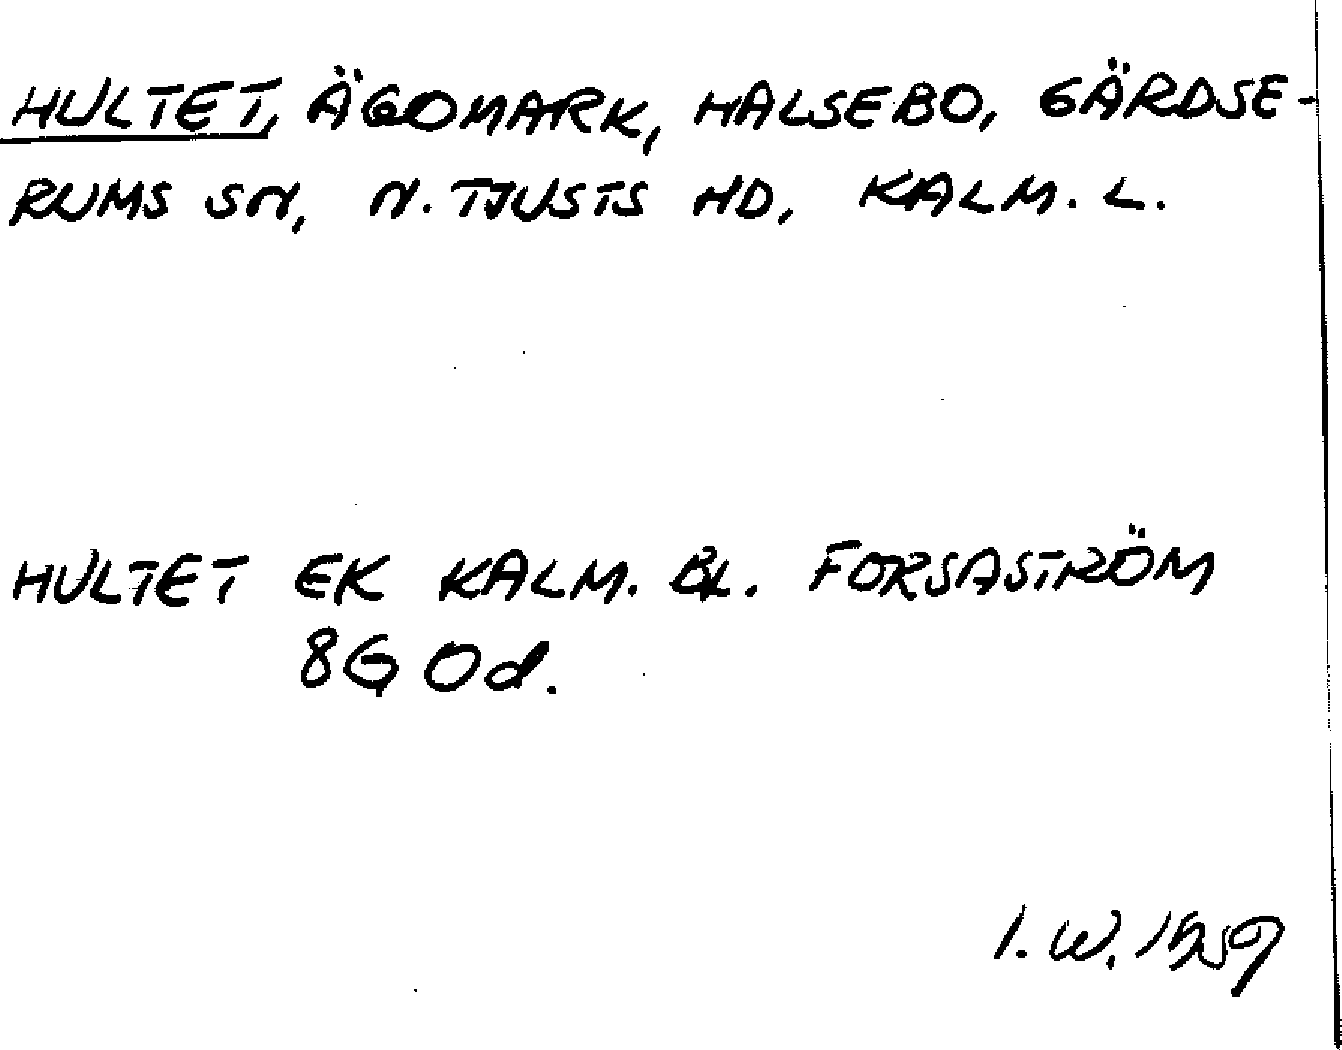 HULTET, ÄGOMARK, HALSEBO, GÄRDSE-
RUMS SN, N. TJUSTS HD, KALM. L.
HULTET EK KALM. BL. FORSASTRÖM
8G Od.
I. W. 1959